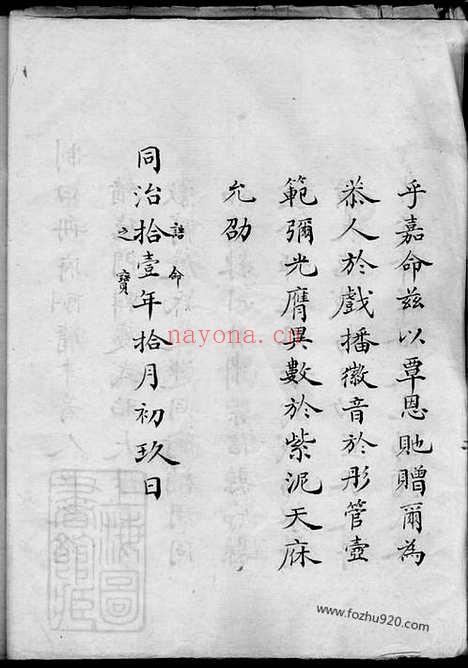 乎嘉命兹以覃恩貤贈爾為
恭人於戲播徽音於彤管壺
範彌光膺異數於紫泥天庥
允劭
同治拾壹年拾月初玖日
誥命
之寶
nayona.cn
www.fozhu920.com